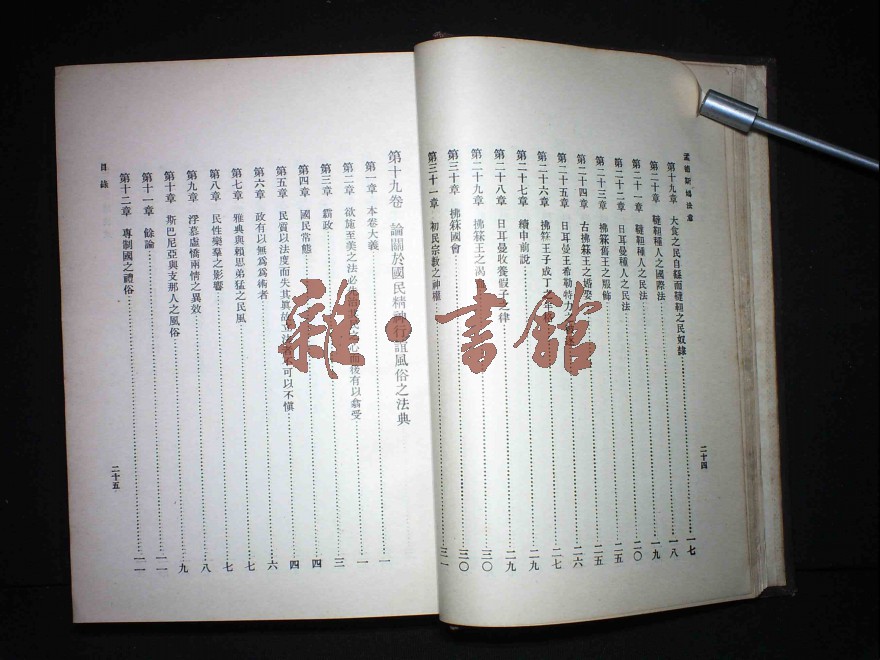 孟德斯鳩法意
第十九章 大食之民自繇而韃靼之民奴隸 一七
第二十章 韃靼種人之國際法 一八
第二十一章 韃靼種人之民法 一九
第二十二章 日耳曼種人之民法 二〇
第二十三章 拂箖舊王之服飾 二五
第二十四章 古拂箖王之婚娶 二五
第二十五章 日耳曼王希勒特力 二六
第二十六章 拂箖王子成丁之年 二七
第二十七章 續申前說 二九
第二十八章 日耳曼收養假子之律 二九
第二十九章 拂箖王之 三〇
第三十章 拂箖國會 三〇
第三十一章 初民宗教之神權 三一
二十四
第十九卷 論關於國民精神行誼風俗之法典
第一章 本卷大義 一
第二章 欲施至美之法必先治其人心而後有以翕受 一
第三章 霸政 三
第四章 國民常態 四
第五章 民質以法度而失其眞故立法者不可以不愼 四
第六章 政有以無爲爲術者 六
第七章 雅典與賴思弟猛之民風 七
第八章 民性樂羣之影響 七
第九章 浮慕虛憍兩情之異效 八
第十章 斯巴尼亞與支那人之風俗 九
第十一章 餘論 一一
第十二章 專制國之禮俗 一一
目錄
二十五
雜·書館